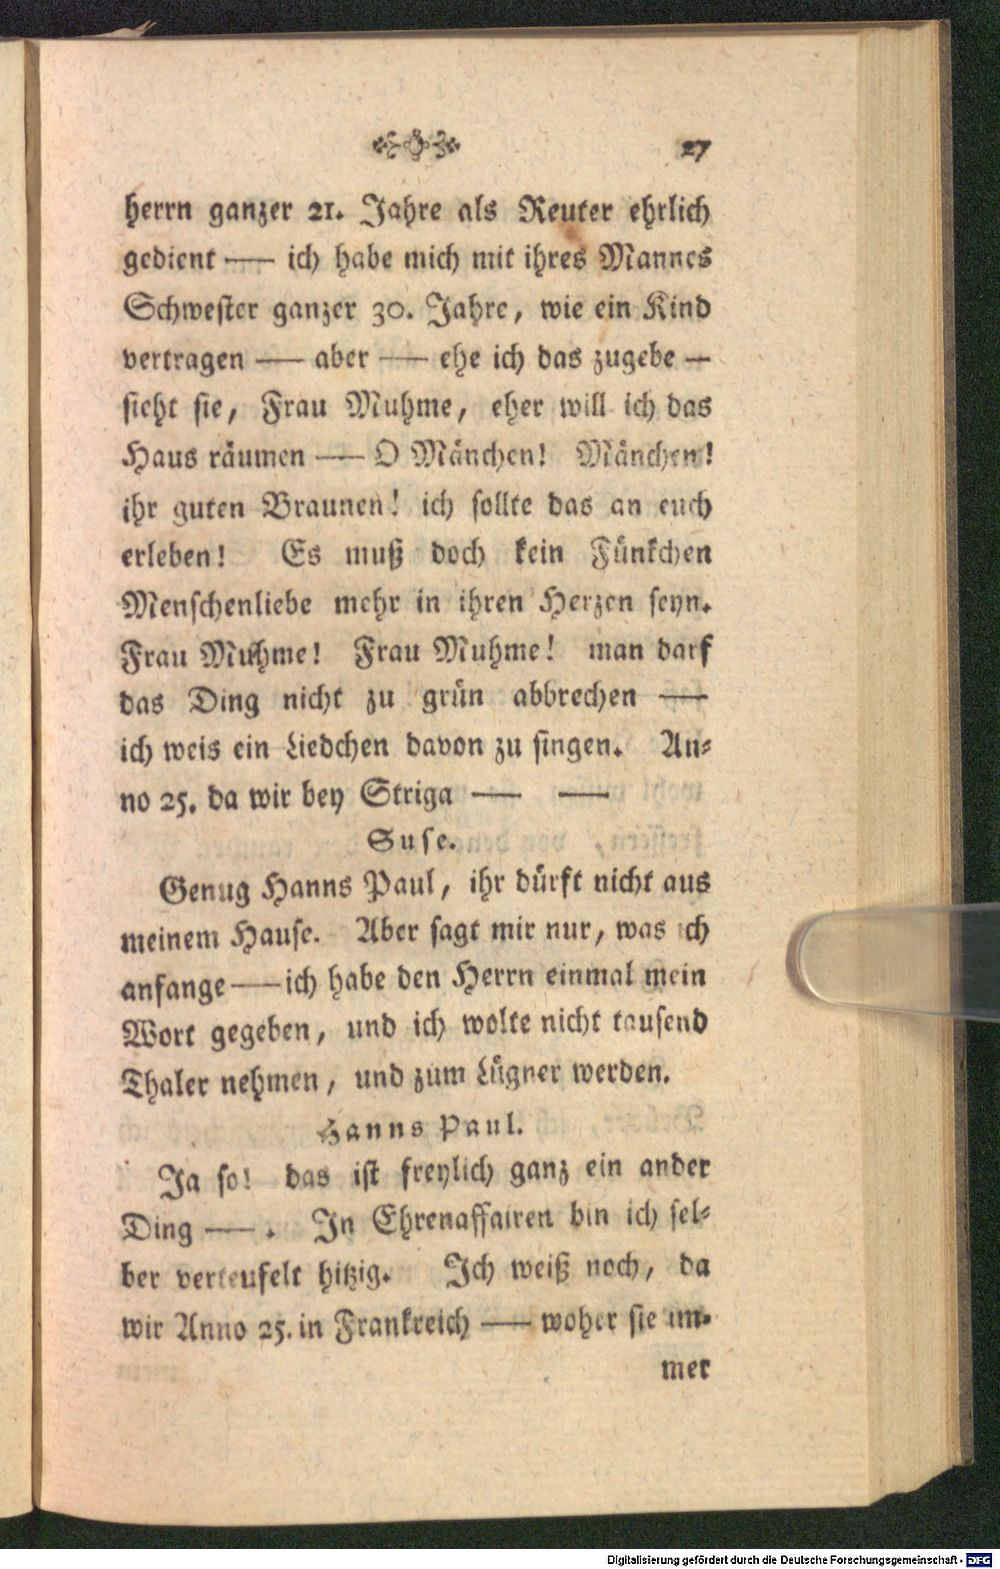 27
herrn ganzer 21. Jahre als Reuter ehrlich
gedient —— ich habe mich mit ihres Mannes
Schwester ganzer 30. Jahre, wie ein Kind
vertragen —— aber —— ehe ich das zugebe —
sieht sie, Frau Muhme, eher will ich das
Haus räumen —— O Mänchen! Mänchen!
ihr guten Braunen! ich sollte das an euch
erleben! Es muß doch kein Fünkchen
Menschenliebe mehr in ihren Herzen seyn.
Frau Muhme! Frau Muhme! man darf
das Ding nicht zu grün abbrechen ——
ich weis ein Liedchen davon zu singen. An-
no 25. da wir bey Striga —— ——
Suse.
Genug Hanns Paul, ihr dürft nicht aus
meinem Hause. Aber sagt mir nur, was ich
anfange —— ich habe den Herrn einmal mein
Wort gegeben, und ich wolte nicht tausend
Thaler nehmen, und zum Lügner werden.
Hanns Paul.
Ja so! das ist freylich ganz ein ander
Ding ——. In Ehrenaffairen bin ich sel-
ber verteufelt hitzig. Ich weiß noch, da
wir Anno 25. in Frankreich —— woher sie im-
mer
Digitalisierung gefördert durch die Deutsche Forschungsgemeinschaft - DFG